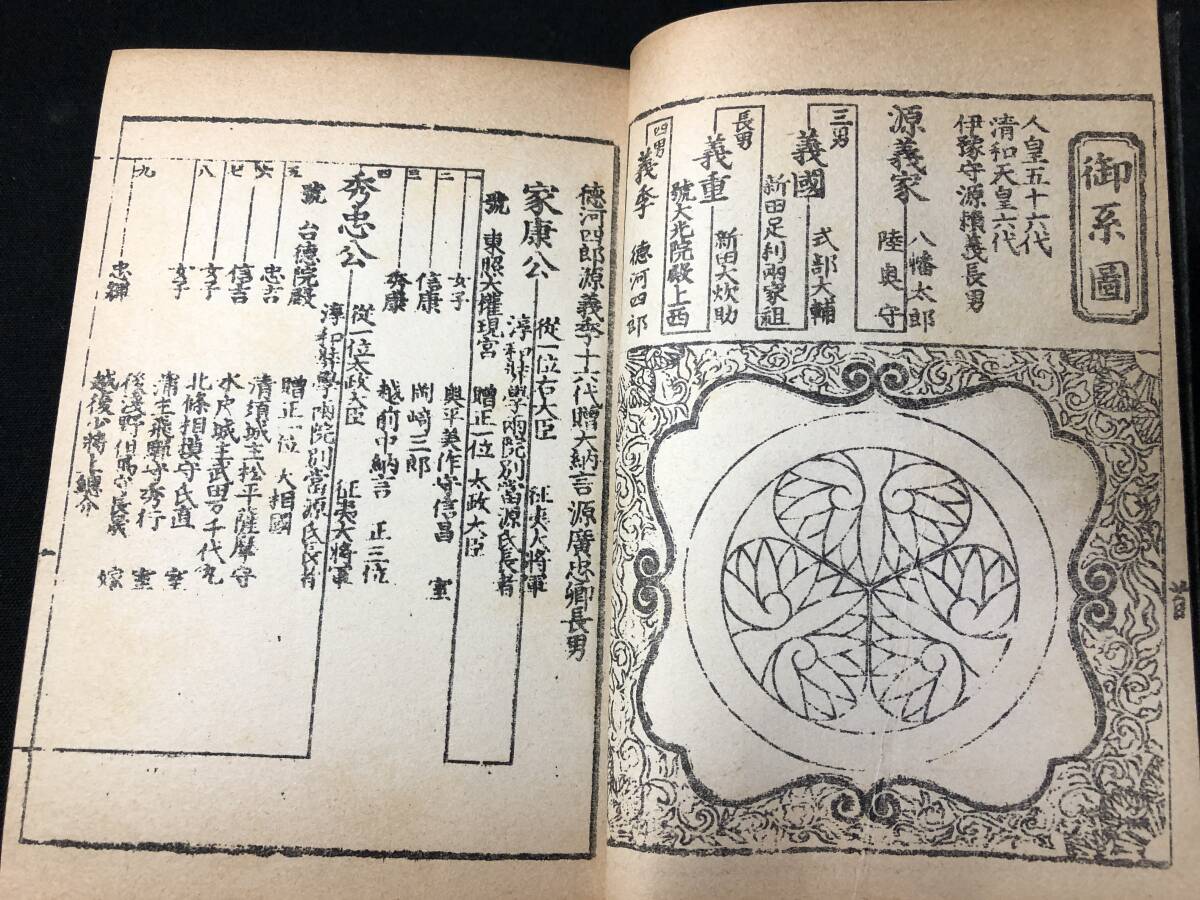 御系圖
人皇五十六代
清和天皇六代
伊豫守源頼義長男
源義家
八幡太郎
陸奥守
三男
義國
式部大輔
新田足利兩家祖
長男
義重
新田大炊助
號大光院殿上西
四男
義季
德河四郎
德河四郎源義季十六代贈大納言源廣忠卿長男
家康公
從一位右大臣
征夷大將軍
淳和奬學兩院別當源氏長者
號 東照大權現宮
贈正一位 太政大臣
二
女子
奥平美作守信昌 室
三
信康
岡崎三郎
四
秀康
越前中納言 正三位
秀忠公
從一位太政大臣
征夷大將軍
淳和奬學兩院別當源氏長者
號 台德院殿
贈正一位 大相國
五
忠吉
清須城主松平薩摩守
六
信吉
水戸城主武田万千代丸
七
女子
北條相模守氏直 室
八
女子
蒲生飛騨守秀行 室
後淺野但馬守長晟 嫁
九
忠輝
越後少將上總介